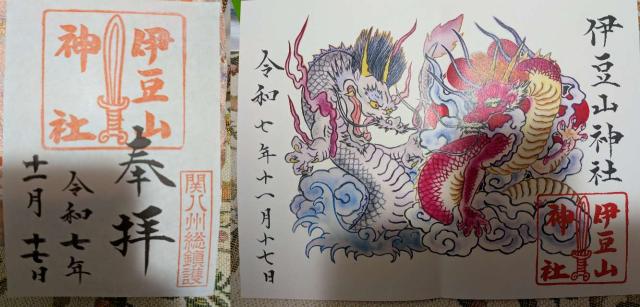 伊豆山
神社
奉拝
関八州総鎮護
令和七年
十一月十七日
伊豆山神社
令和七年十一月十七日
伊豆山
神社